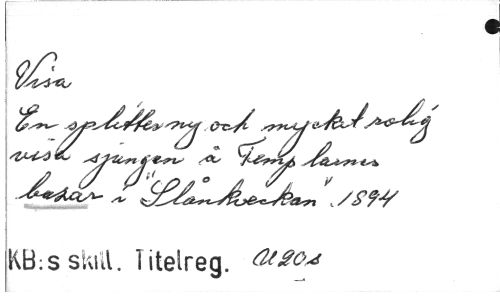 Visa
En splitterny och mycket rolig
visa sjungen å Templarnes
basar i "Slånkveckan". 1894
KB:s skill. Titelreg. U 20 s